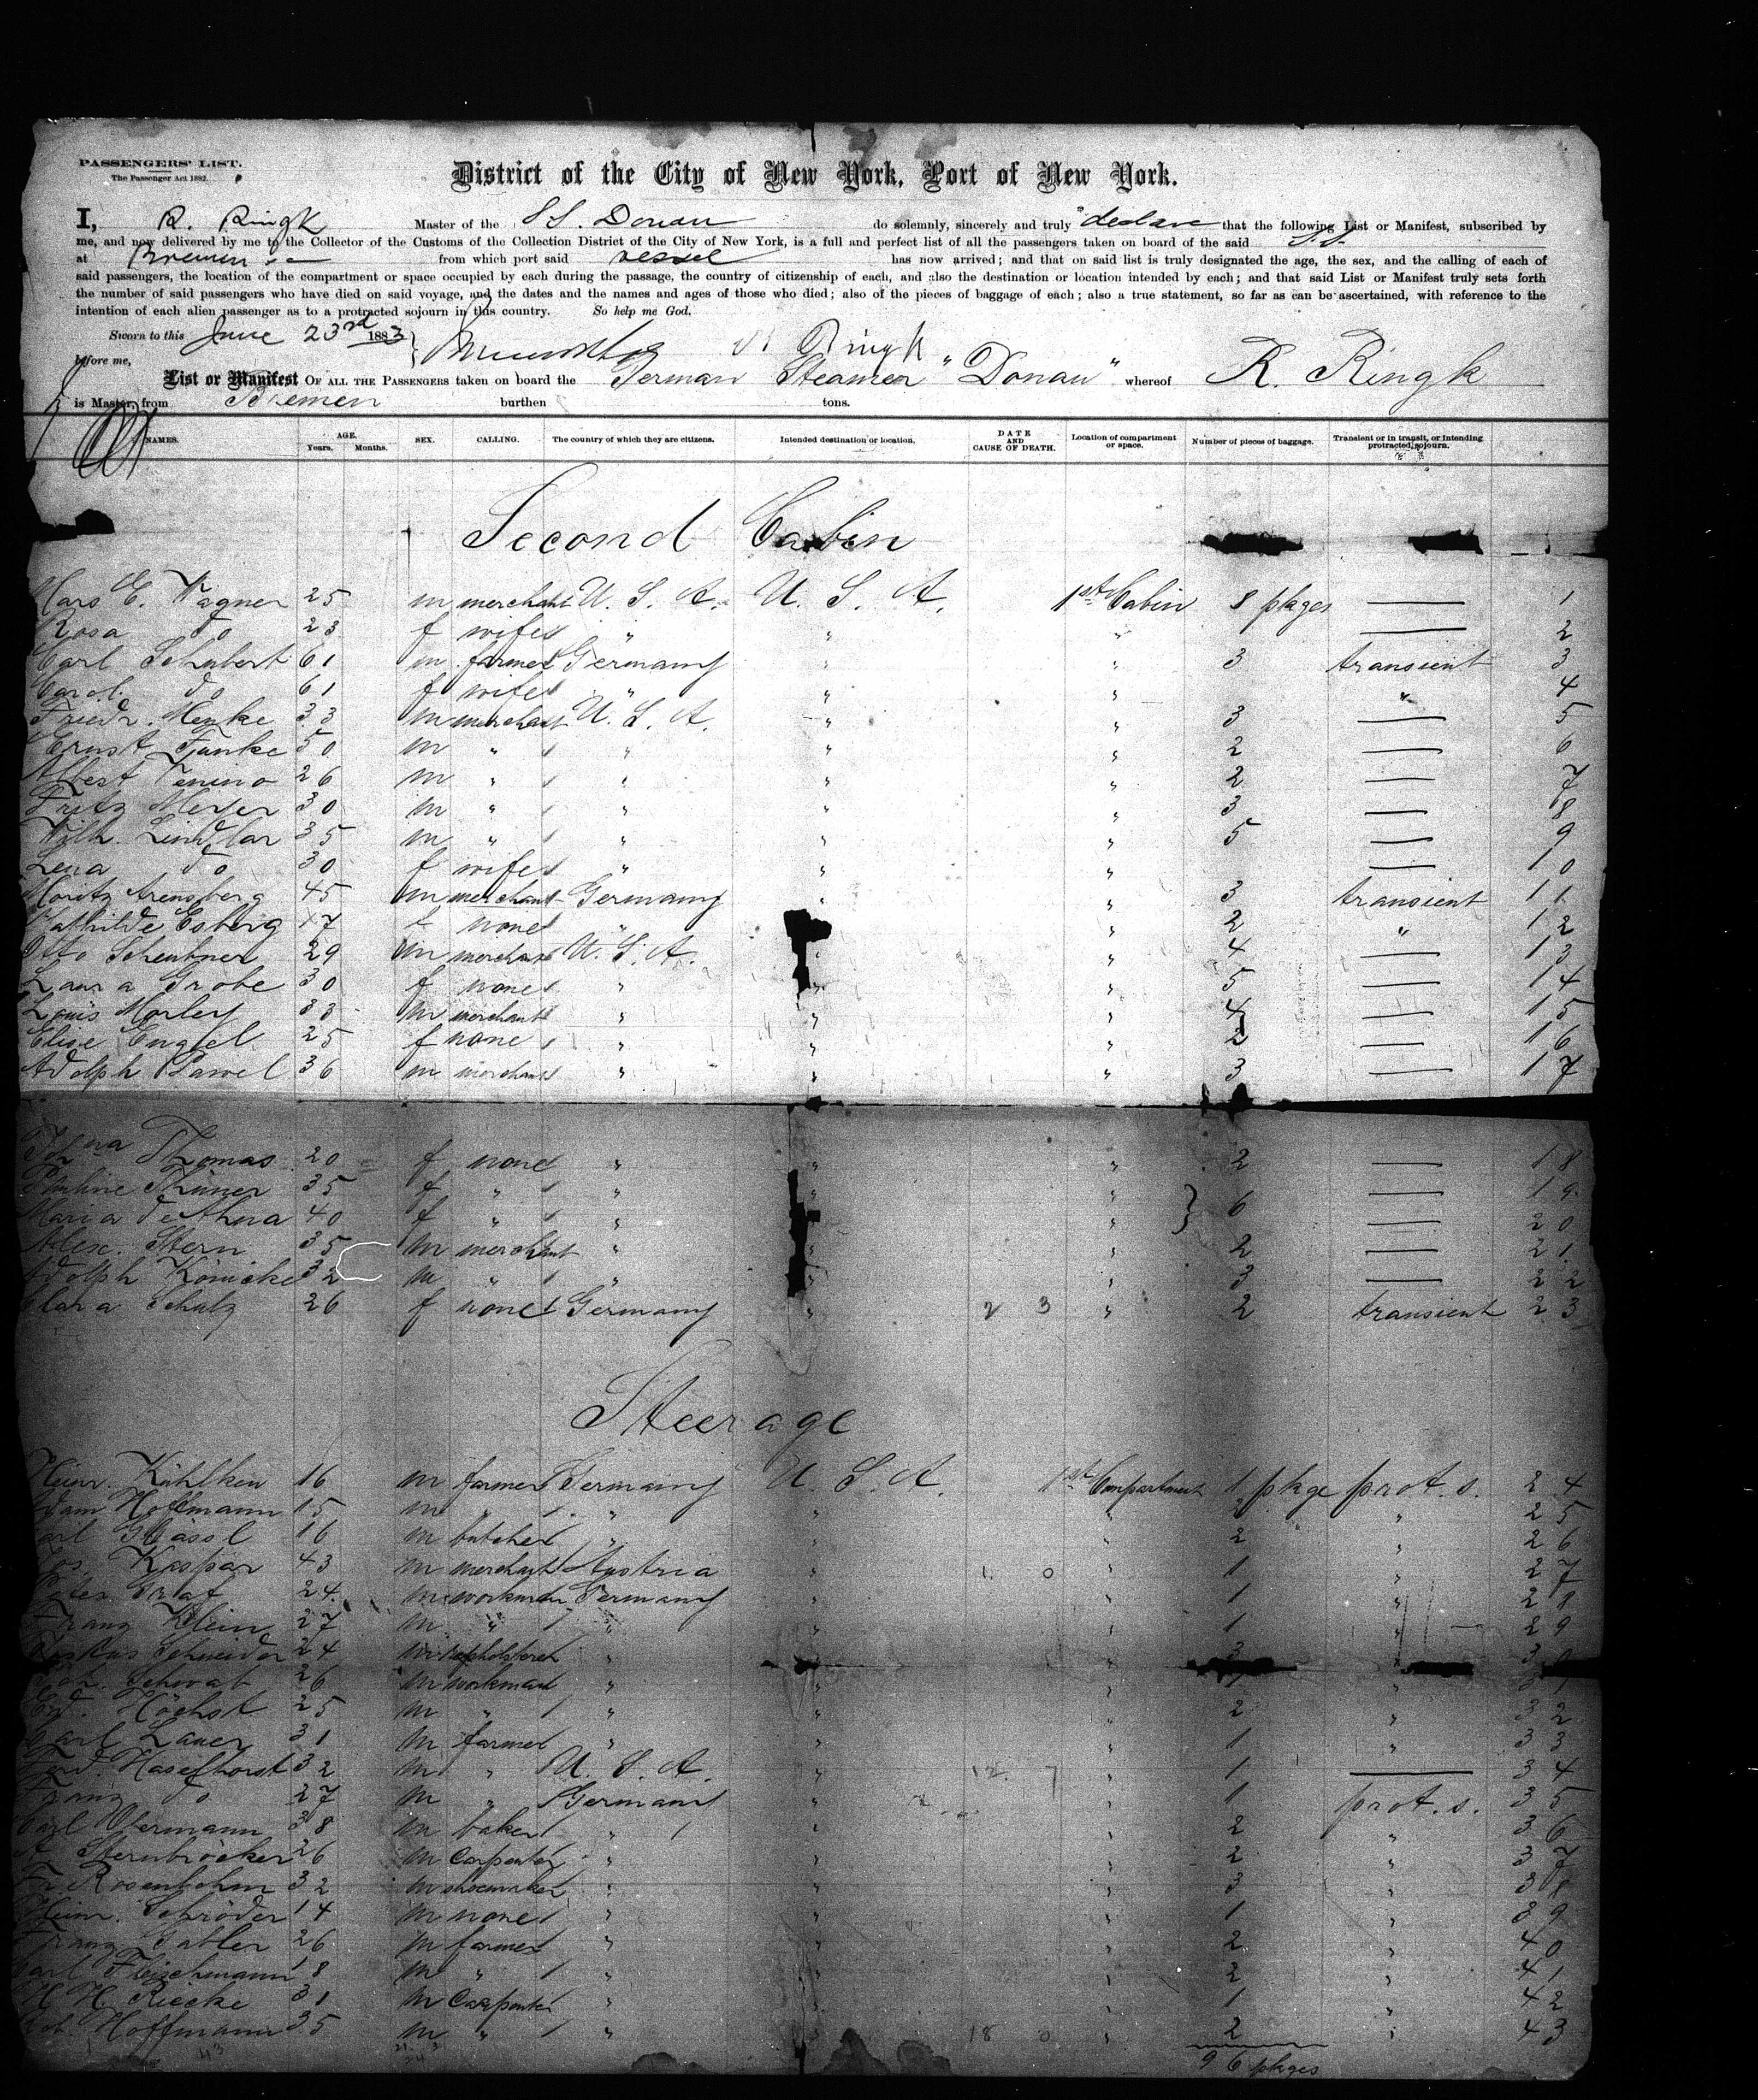 PASSENGERS' LIST.
The Passenger Act 1882.
District of the City of New York, Port of New York.
I, R. Ringk Master of the S S. Donau do solemnly, sincerely and truly declare that the following List or Manifest, subscribed by
me, and now delivered by me to the Collector of the Customs of the Collection District of the City of New York, is a full and perfect list of all the passengers taken on board of the said S.S.
at Bremen from which port said vessel has now arrived; and that on said list is truly designated the age, the sex, and the calling of each of
said passengers, the location of the compartment or space occupied by each during the passage, the country of citizenship of each, and also the destination or location intended by each; and that said List or Manifest truly sets forth
the number of said passengers who have died on said voyage, and the dates and the names and ages of those who died; also of the pieces of baggage of each; also a true statement, so far as can be ascertained, with reference to the
intention of each alien passenger as to a protracted sojourn in this country. So help me God.
Sworn to this June 23rd 1883
before me, R. Ringk
List or Manifest OF ALL THE PASSENGERS taken on board the German Steamer "Donau" whereof R. Ringk
is Master, from Bremen burthen tons.
NAMES. AGE. Years. Months. SEX. CALLING. The country of which they are citizens. Intended destination or location. DATE AND CAUSE OF DEATH. Location of compartment or space. Number of pieces of baggage. Transient or in transit, or intending protracted sojourn.
Second Cabin
E. Wagner 25 m merchant U. S. A. U. S. A. 1st Cabin 8 pkges — 1
Rosa do 23 f wife " " " — 2
Carl Schubert 61 m farmer Germany " " 3 transient 3
Carol. do 61 f wife " " " " 4
Friedr. Menke 33 m merchant U. S. A. " " 3 — 5
Ernst Funke 50 m " " " " 2 — 6
Albert 26 m " " " " 2 — 7
Fritz Meyer 30 m " " " " 3 — 8
Wilh. Lindlar 35 m " " " " 5 — 9
Lena do 30 f wife " " " — 10
Moritz Arensberg 45 m merchant Germany " " 3 transient 11
Mathilde Esberg 17 f none " " 2 " 12
Otto Scheubner 29 m merchant U. S. A. " " 4 — 13
Laura Grobe 30 f none " " " 5 — 14
Louis Morley 33 m merchant " " " 4 — 15
Elise Engel 25 f none " " " 2 — 16
Adolph Pawel 36 m merchant " " " 3 — 17
Thomas 20 f none " " " 2 — 18
Pauline Thüner 35 f " " " " } 6 — 19
Maria de Ahna 40 f " " " " — 20
Alex. Stern 35 m merchant " " " 2 — 21
Adolph Könicke 32 m " " " " 3 — 22
Clara Schulz 26 f none Germany " 2 3 " 2 transient 23
Steerage
Heinr. Kühlken 16 m farmer Germany U. S. A. 1st Compartment 1 pkge prot. s. 24
Adam Hoffmann 15 m " " " " 2 " 25
Carl Glässl 16 m butcher " " " 2 " 26
Jos. Kaspar 43 m merchant Austria " 1. 0 " 1 " 27
Peter Graf 24 m workman Germany " " 1 " 28
Franz Klein 27 m " " " " 1 " 29
Schneider 24 m upholsterer " " " 3 " 30
Schwab 26 m workman " " " " 31
Höchst 25 m " " " " 2 " 32
Carl Lauer 31 m farmer " " " 1 " 33
Ferd. Haselhorst 32 m " U. S. A. " 12. 7 " 1 — 34
Franz do 27 m " Germany " " 1 prot. s. 35
Carl Obermann 38 m baker " " " 2 " 36
Sternbröcker 26 m carpenter " " " 2 " 37
Fr. Rosenbohm 32 m shoemaker " " " 3 " 38
Heinr. Schröder 14 m none " " " 1 " 39
Franz Gabler 26 m farmer " " " 2 " 40
Carl Fleischmann 18 m " " " " 2 " 41
H. H. Riecke 31 m carpenter " " " 1 " 42
Rob. Hoffmann 35 m " " " 18 0 " 2 " 43
96 pkges